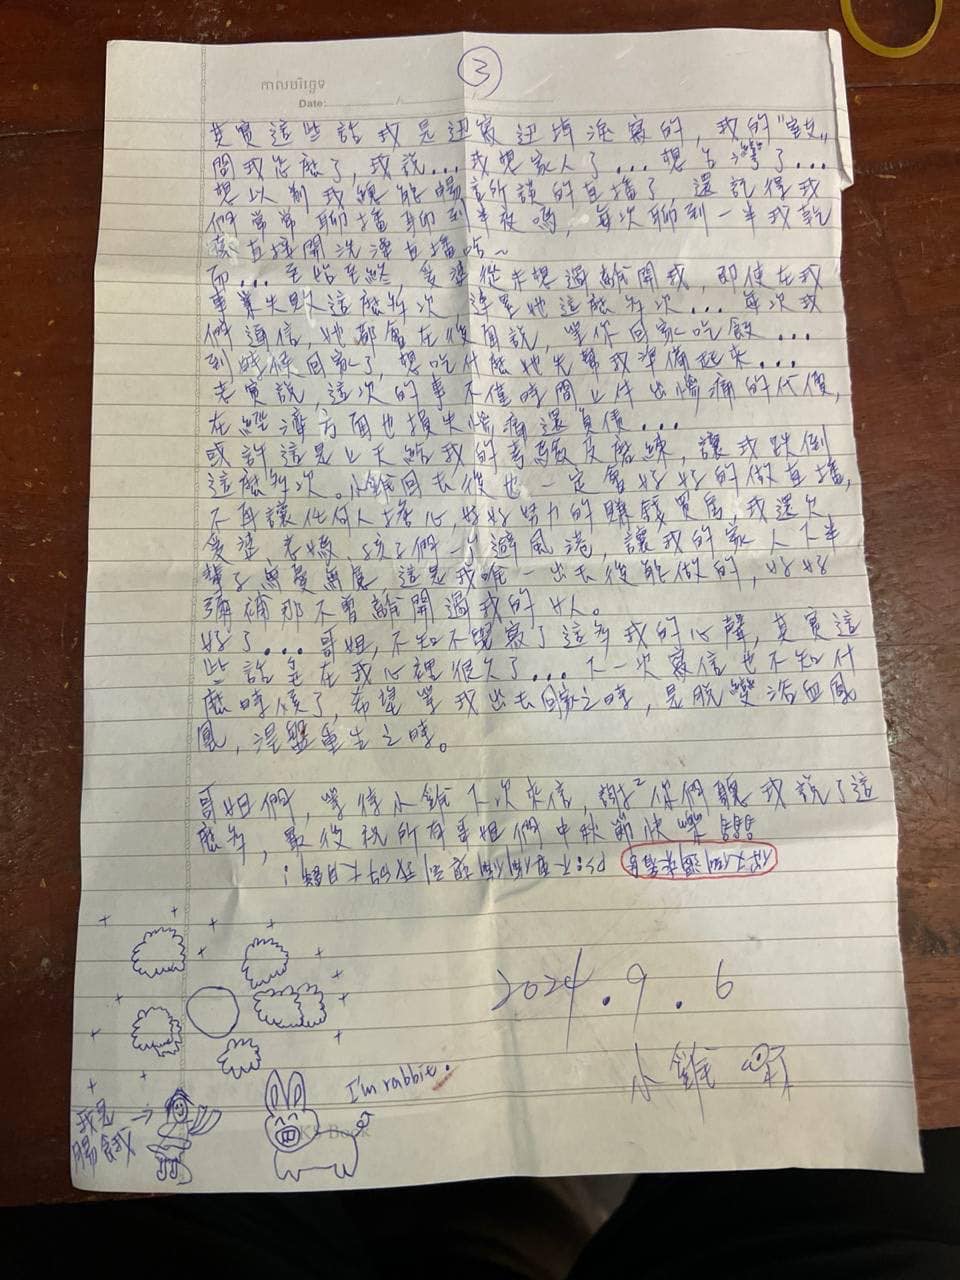 ③
កាលបរិច្ឆេទ
Date: / /
其實這些話我是迅寫迅掉淚寫的，我的"室友"
問我怎麼了，我說...我想家人了...想台灣了...
想以前我總能暢言所談的直播了 還記得我
們常常聊播聊到半夜嗎，每次聊到一半我乾
直接開洗澡直播哈~
而...至始至終，愛 從未想過離開我，即使在我
事業失敗這麼多次 她這麼多次...每次我
們通信，她都會在後面說，等你回家吃飯...
到時候回家了，想吃什麼她先幫我準備起來...
老實說，這次的事不僅時間上付出慘痛的代價，
在經濟方面也損失慘痛還負債...
或許這是上天給我的考驗及磨練，讓我跌倒
這麼多次。小雞回去後也一定會好好的做直播，
不再讓任何人擔心，好好努力的賺錢買房，我還欠
愛 、老媽、孩子們一個避風港，讓我的家人下半
輩子無憂無慮 這是我唯一出去後能做的，好好
彌補那不曾離開過我的女人。
好了...哥姐，不知不覺寫了這多我的心聲，其實這
些話是在我心裡很久了...下一次寫信也不知什
麼時候了，希望等我出去回家之時，是脫變浴血鳳
凰，涅盤重生之時。
哥姐們，等待小雞下次來信，謝²你們聽我說了這
麼多，最後祝所有哥姐們中秋節快樂
2024.9.6
小雞
I'm rabbit.
我是
嫦娥
K's Book